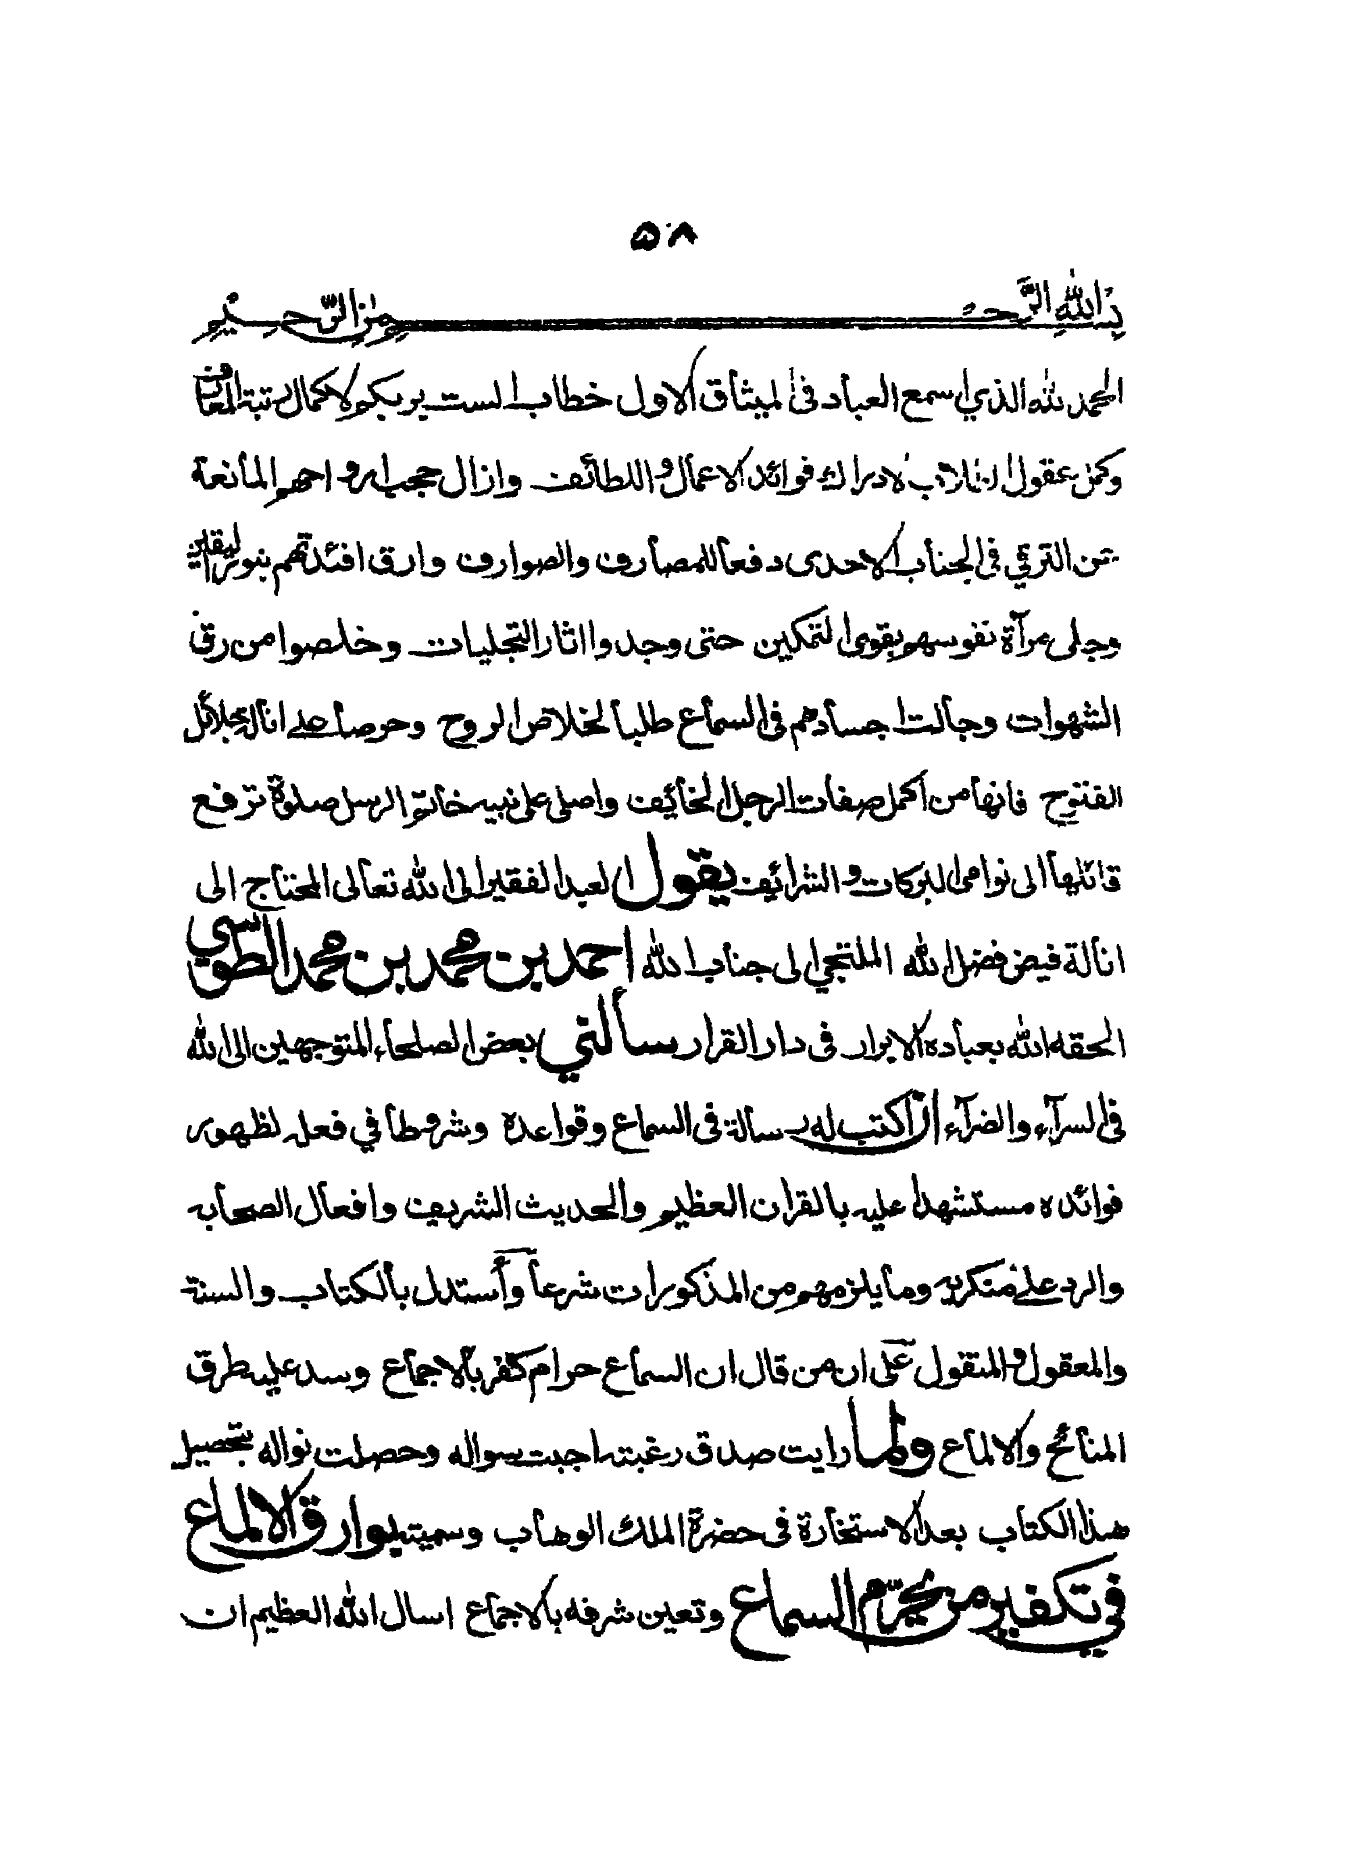 ٥٨
بسم الله الرحمن الرحيم
الحمد لله الذي اسمع العباد فى الميثاق الاول خطاب الست بربكم لاكمال رتبة المعارف
وكمن عقول الالاب لادراك فوائد الاعمال واللطائف وازال حجب ارواحهم المانعة
عن الترقي فى الجناب الاحدى دفعا للمصارف والصوارف وارق افئدتهم بنور اليقين
وجلى مرآة نفوسهم بقوى التمكين حتى وجدوا اثار التجليات وخلصوا من رق
الشهوات وجالت اجسادهم فى السماع طلبا لخلاص الروح وحرصا على انالة جلائل
الفتوح فانها من اكمل صفات الرجل الخائف واصلى على نبيه خاتم الرسل صلوة ترفع
قائلها الى نوامى البركات والشرائف يقول العبد الفقير الى الله تعالى المحتاج الى
انالة فيض فضل الله الملتجي الى جناب الله احمد بن محمد بن محمد الطوسي
الحقه الله بعباده الابرار فى دار القرار سألني بعض الصلحاء المتوجهين الى الله
فى السرآء والضرآء ان اكتب له رسالة فى السماع وقواعده وشروطا في فعله لظهور
فوائده مستشهدا عليه بالقران العظيم والحديث الشريف وافعال الصحابه
والرد على منكريه وما يلزمهم من المذكورات شرعا وأستدل بالكتاب والسنة
والمعقول والمنقول على ان من قال ان السماع حرام كفر بالاجماع وسد عليه طرق
المنائح والالماع ولما رايت صدق رغبته اجبت سواله وحصلت نواله بتحصيل
هذا الكتاب بعد الاستخارة فى حضرة الملك الوهاب وسميته بوارق الالماع
في تكفير من يحرم السماع وتعين شرفه بالاجماع اسال الله العظيم ان